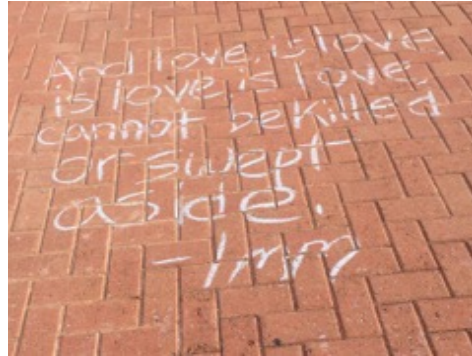 And love is love
is love is love,
cannot be killed
or swept
aside.
-lmm